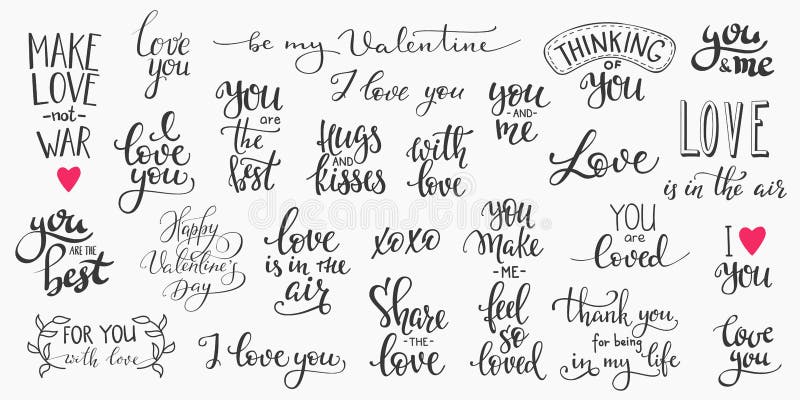 MAKE
LOVE
-not-
WAR
love
you
be my Valentine
I love you
THINKING
OF
You
you
& me
I
love
you
You
are
the
best
Hugs
AND
kisses
with
love
you
-AND-
me
Love
LOVE
is in the air
you
ARE THE
best
Happy
Valentine's
Day
love
is in the
air
xoxo
Share
-THE-
love
you
make
-ME-
feel
so
loved
YOU
are
loved
I
You
FOR YOU
with love
I love you
thank you
for being
in my life
love
you
dreamstime